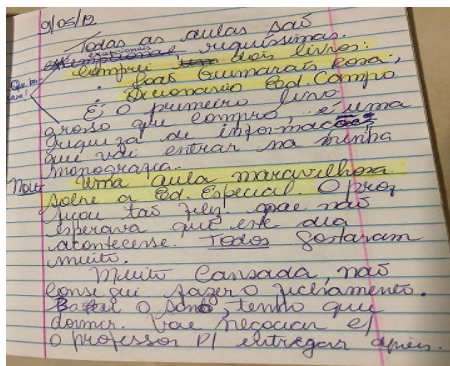 9/05/12
Todas as aulas são
excepcionais riquíssimas.
comprei dois livros:
. João Guimarães Rosa;
. Dicionario Ed. Campo
É o primeiro livro
grosso que compro, é uma
riqueza de informações
que vai entrar na minha
monografia.
Uma aula maravilhosa
sobre a Ed. Especial O prof
ficou tão feliz. que não
esperava que este dia
acontecesse. Todos gostaram
muito.
Muito Cansada, não
consegui fazer o fichamento.
Bateu o sono, tenho que
dormir. Vou negociar c/
o professor p/ entregar depois.